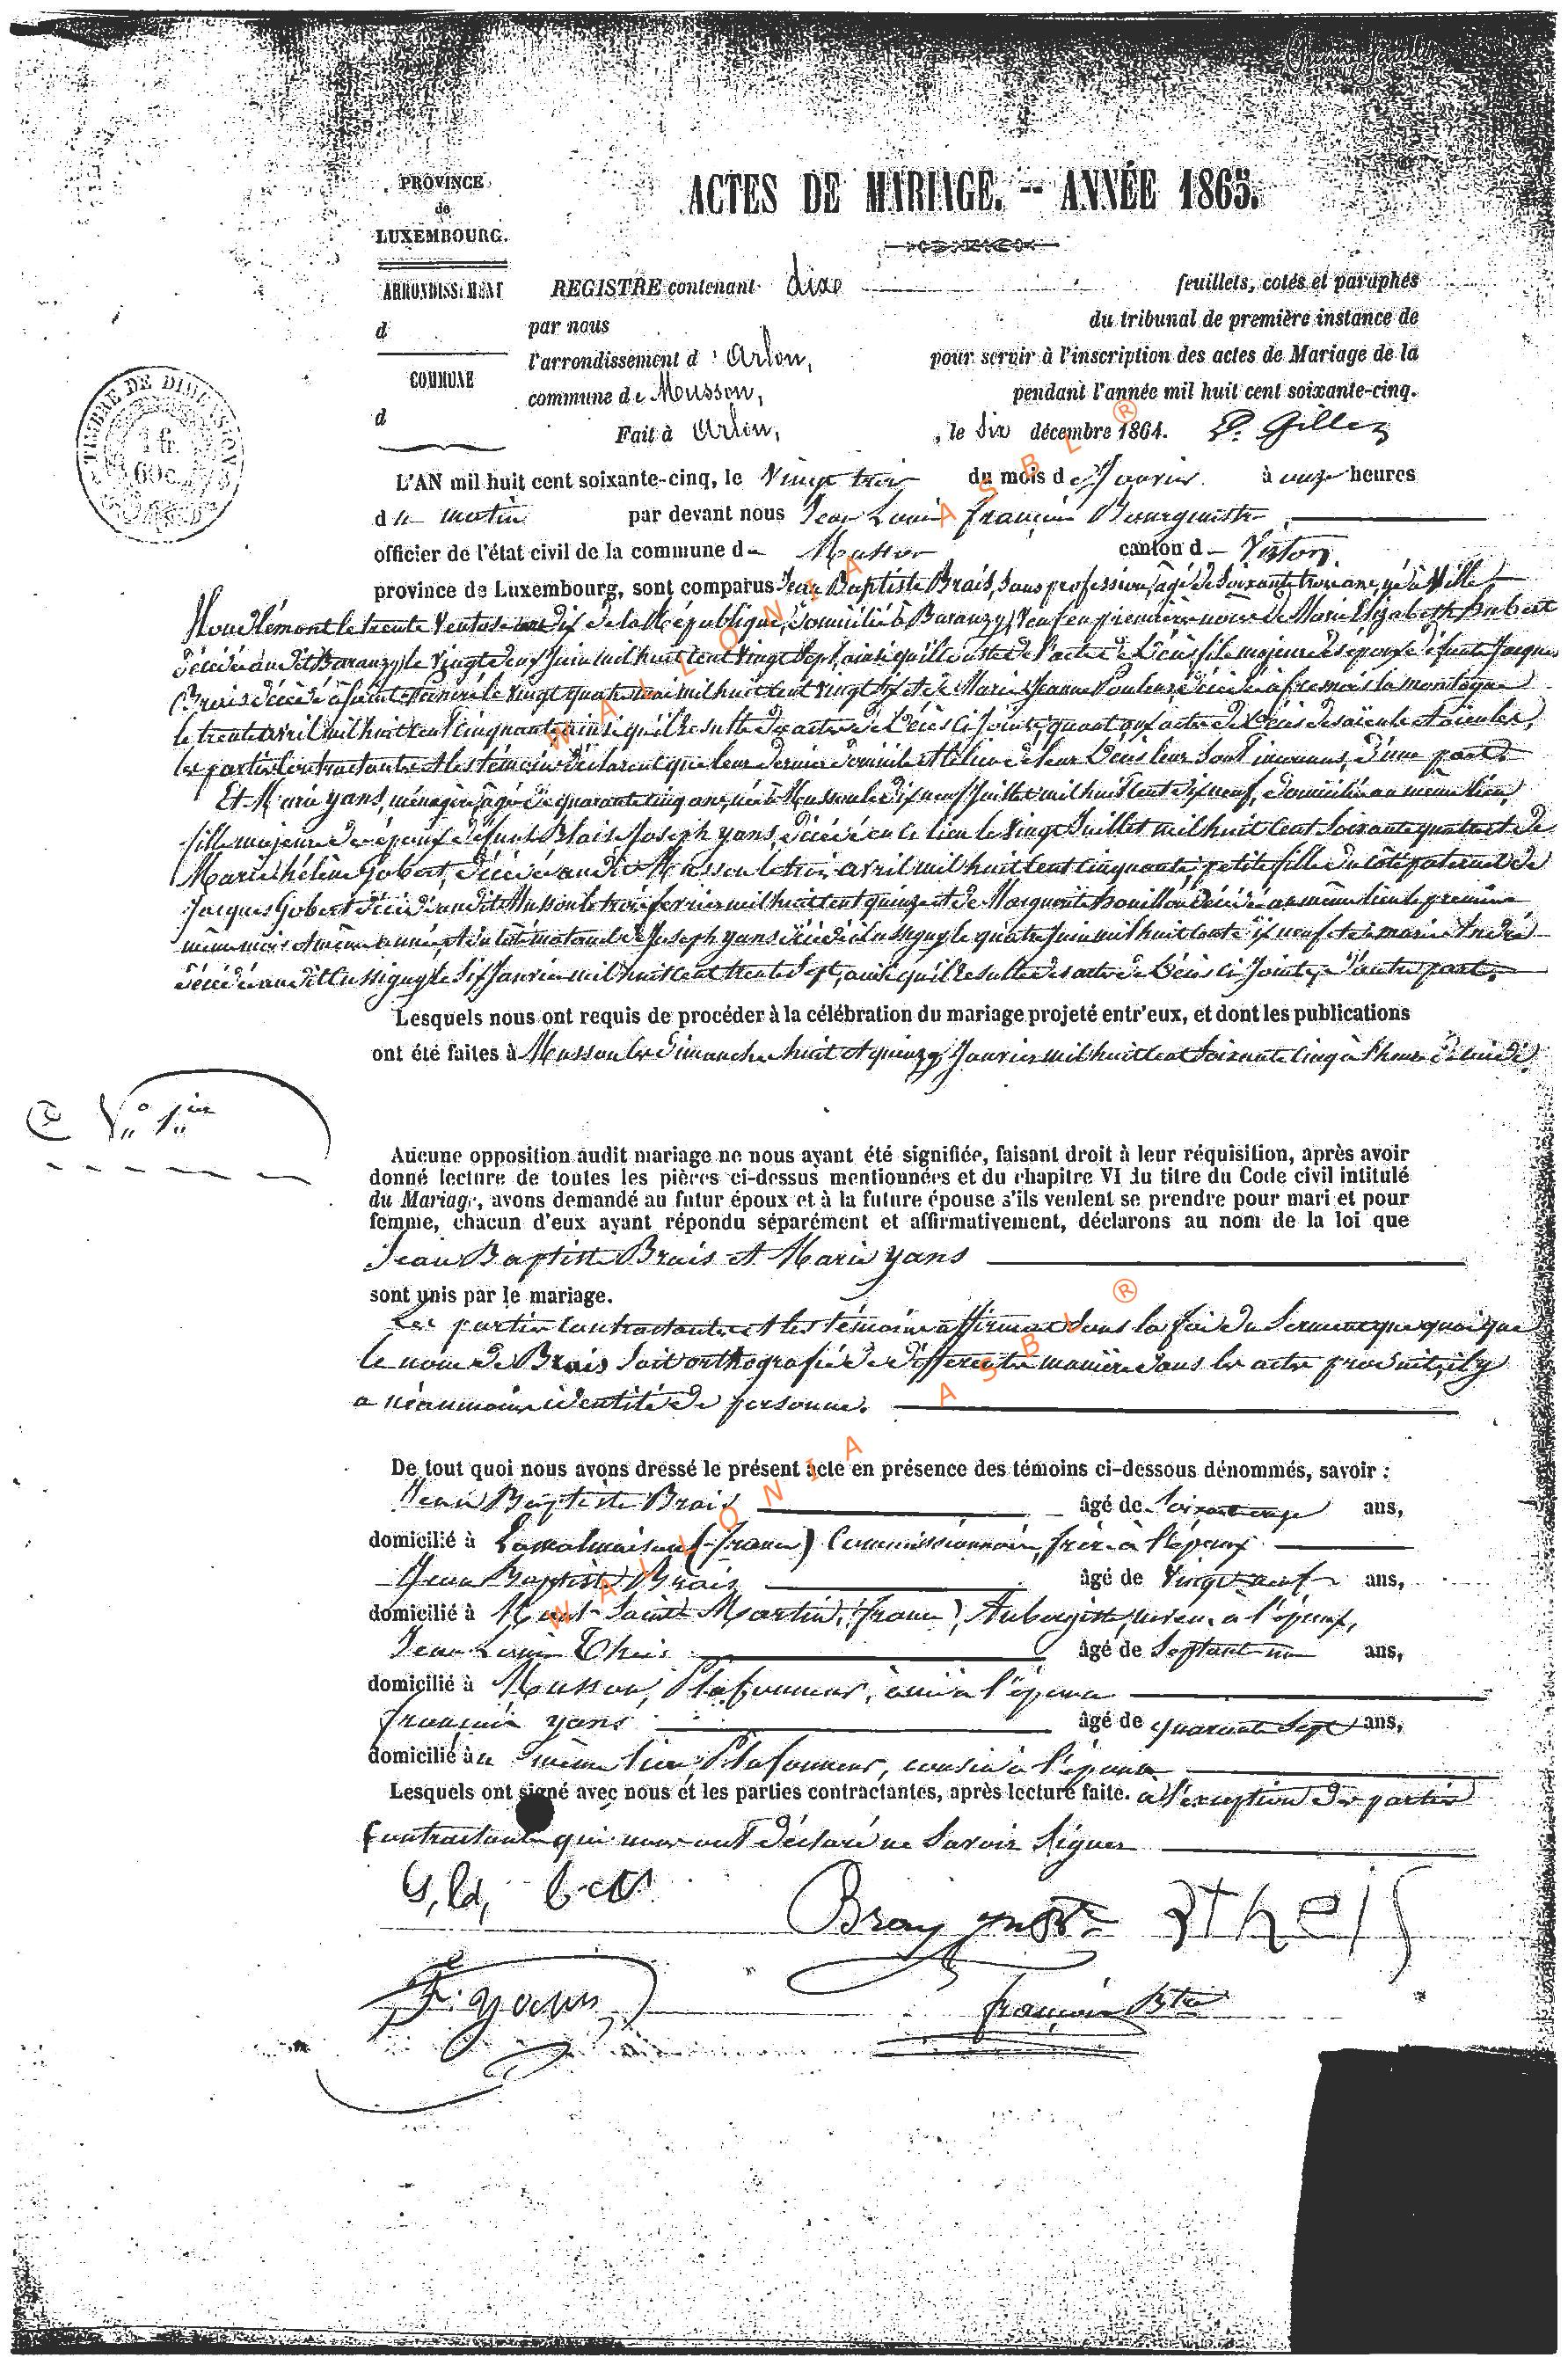 PROVINCE
de
LUXEMBOURG.
ACTES DE MARIAGE. -- ANNÉE 1865.
ARRONDISSEMENT
d
COMMUNE
d
TIMBRE DE DIMENSION
1 fr.
60 c.
REGISTRE contenant dix feuillets, cotés et paraphés
par nous du tribunal de première instance de
l'arrondissement d'Arlon, pour servir à l'inscription des actes de Mariage de la
commune de Musson, pendant l'année mil huit cent soixante-cinq.
Fait à Arlon, , le six décembre 1864. P. Gillez
L'AN mil huit cent soixante-cinq, le Vingt trois du mois de Janvier à onze heures
du matin par devant nous Jean Louis françois Bourguinotte
officier de l'état civil de la commune de Musson canton de Virton,
province de Luxembourg, sont comparus Jean Baptiste Brais, sans profession, âgé de Soixante trois ans, né à Ville
Houdlémont le trente Ventose an dix de la République, domicilié à Baranzy, Veuf en premières noces de Marie Elizabeth Hubert
décédée audit Baranzy le Vingt deux Juin mil huit cent Vingt Sept, ainsi qu'il conste de l'acte de décès, fils majeur des époux défunts Jacques
Brais décédé à le Vingt quatre mai mil huit cent Vingt six et de Marie Jeanne décédée à fresnois la montagne
le trente avril mil huit cent cinquante ainsi qu'il résulte des actes de décès ci joints, quant aux actes de décès des aïeuls et aïeules,
les parties contractantes et les témoins déclarent que leur dernier domicile et le lieu de leur décès leur sont inconnus, d'une part.
Et Marie yans, ménagère, âgée de quarante cinq ans, née à Musson le dix neuf Juillet mil huit cent dix neuf, domiciliée au même lieu,
fille majeure des époux défunts Blaise Joseph yans, décédé en ce lieu le Vingt Juillet mil huit cent Soixante quatre et de
Marie hélène Gobert, décédée audit Musson le trois avril mil huit cent cinquante, petite fille du côté paternel de
Jacques Gobert décédé audit Musson le trois février mil huit cent quinze et de Marguerite décédée au même lieu le premier
même mois et même année, et du côté maternel de Joseph yans décédé à Cussigny le quatre Juin mil huit cent dix neuf et de marie André
décédée audit Cussigny le Six Janvier mil huit cent trente Sept, ainsi qu'il résulte des actes de décès ci Joints, d'autre part.
Lesquels nous ont requis de procéder à la célébration du mariage projeté entr'eux, et dont les publications
ont été faites à Musson les dimanches huit et quinze Janvier mil huit cent Soixante cinq à l'heure de midi.
N° 1er
Aucune opposition audit mariage ne nous ayant été signifiée, faisant droit à leur réquisition, après avoir
donné lecture de toutes les pièces ci-dessus mentionnées et du chapitre VI du titre du Code civil intitulé
du Mariage, avons demandé au futur époux et à la future épouse s'ils veulent se prendre pour mari et pour
femme, chacun d'eux ayant répondu séparément et affirmativement, déclarons au nom de la loi que
Jean Baptiste Brais et Marie yans
sont unis par le mariage.
Les parties contractantes et les témoins affirment sous la foi du Serment que quoique
le nom de Brais soit orthografié de différentes manières dans les actes produits, il y
a néanmoins identité de personne.
De tout quoi nous avons dressé le présent acte en présence des témoins ci-dessous dénommés, savoir :
Jean Baptiste Brais âgé de Soixante ans,
domicilié à Lamalmaison (france) Commissionnaire, frère à l'époux
Jean Baptiste Brais âgé de Vingt neuf ans,
domicilié à Mont-Saint Martin, (france), Aubergiste, neveu à l'époux,
Jean Louis Theis âgé de Septante un ans,
domicilié à Musson, Plafonneur, ami à l'épouse
françois yans âgé de quarante Sept ans,
domicilié au même lieu, Plafonneur, cousin à l'épouse
Lesquels ont signé avec nous et les parties contractantes, après lecture faite. à l'exception des parties
Contractantes qui nous ont déclaré ne Savoir Signer
F. yans
WALLONIA ASBL ®
WALLONIA ASBL ®